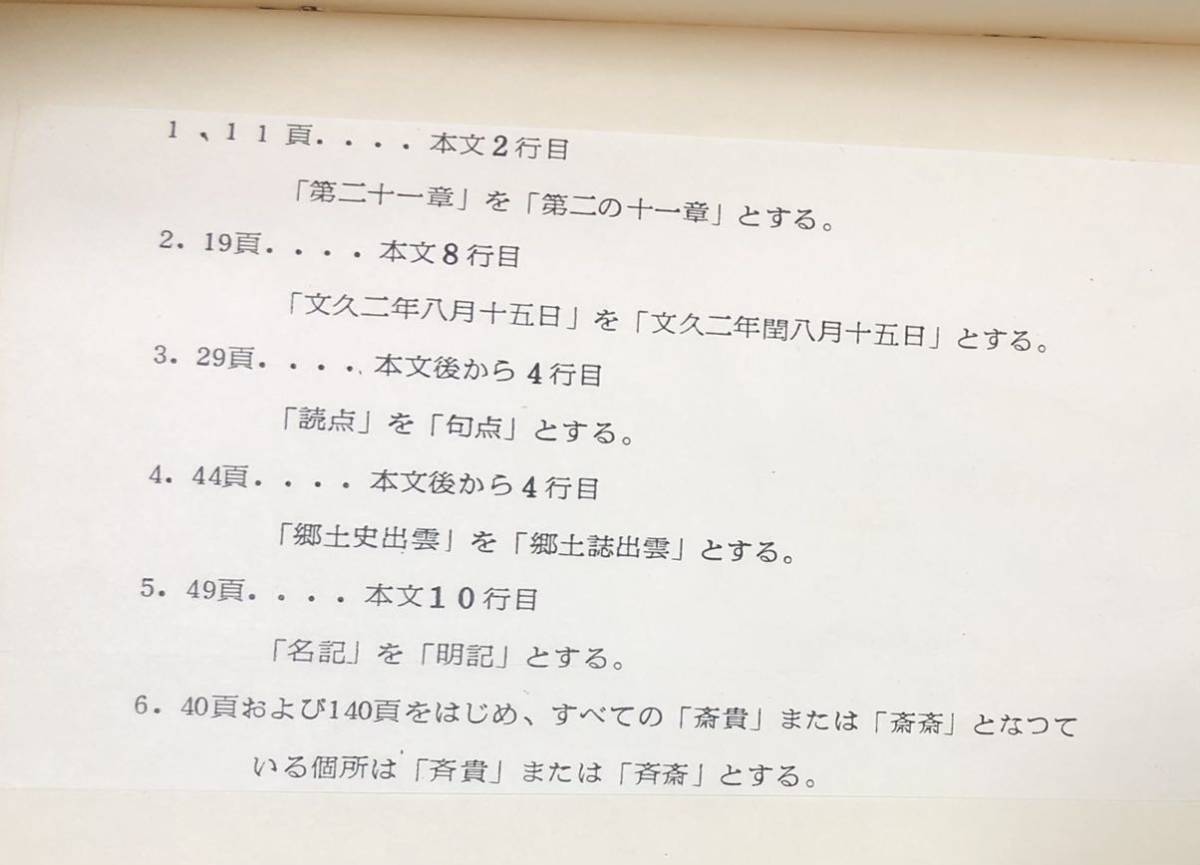 1、11頁....本文2行目
「第二十一章」を「第二の十一章」とする。
2. 19頁....本文8行目
「文久二年八月十五日」を「文久二年閏八月十五日」とする。
3. 29頁....本文後から4行目
「読点」を「句点」とする。
4. 44頁....本文後から4行目
「郷土史出雲」を「郷土誌出雲」とする。
5. 49頁....本文10行目
「名記」を「明記」とする。
6. 40頁および140頁をはじめ、すべての「斎貴」または「斎斎」となつて
いる個所は「斉貴」または「斉斎」とする。